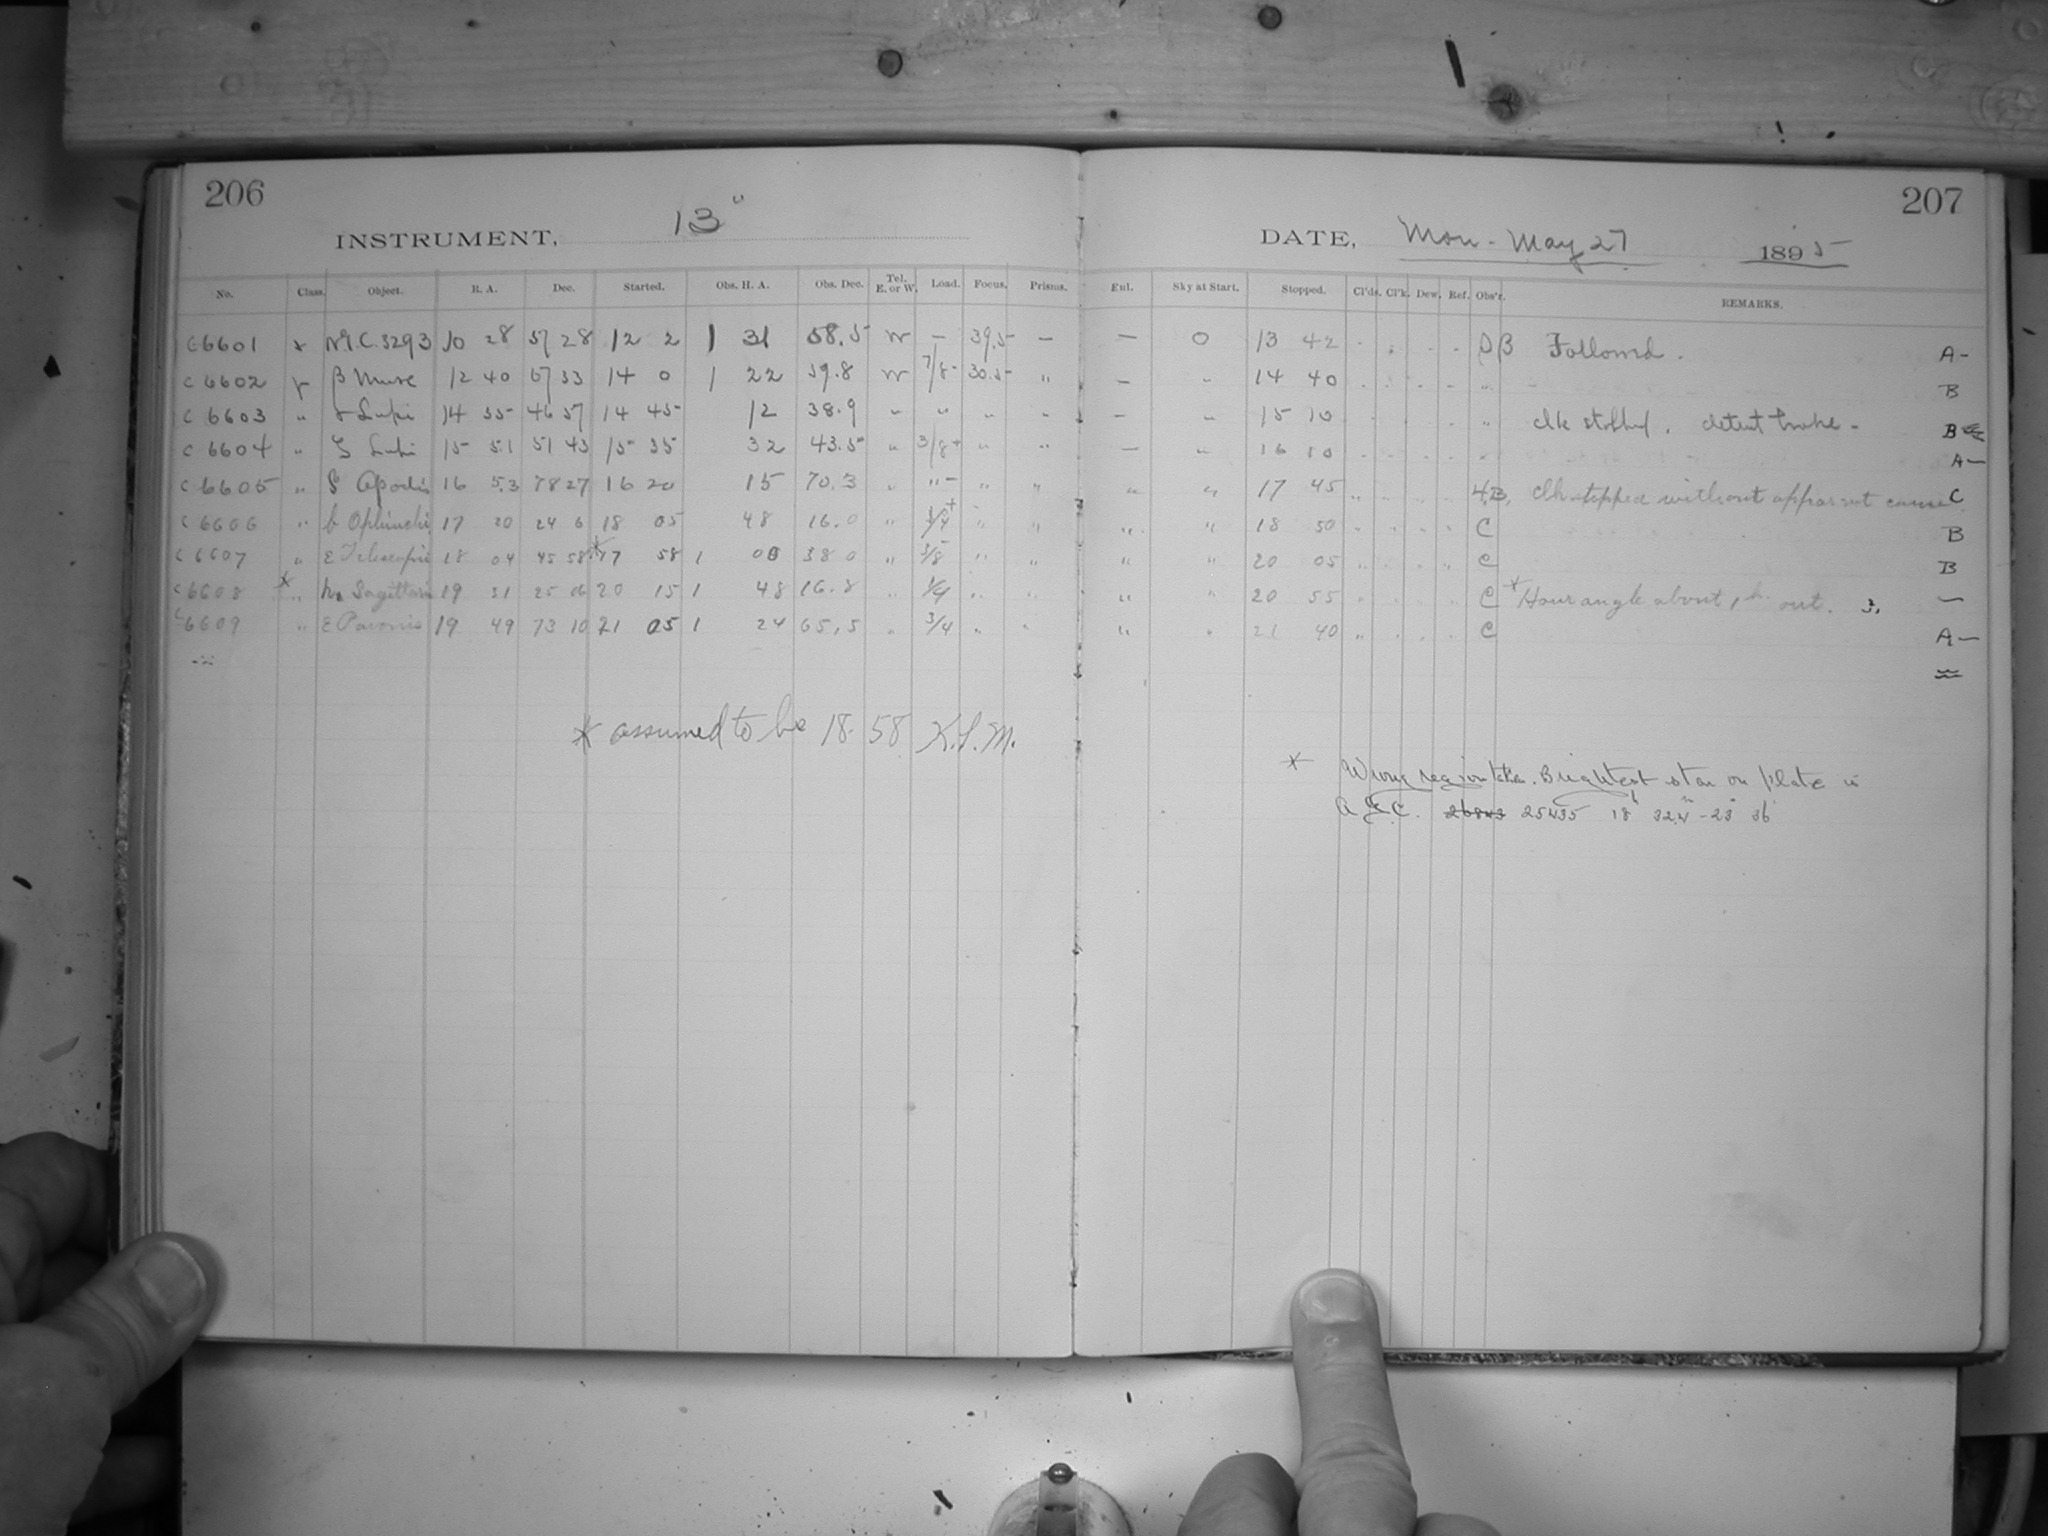 206
INSTRUMENT, 13"
No. Class. Object. R. A. Dec. Started. Obs. H. A. Obs. Dec. Tel. E. or W. Load. Focus. Prisms.
C6601 x N.G.C. 3293 10 28 57 28 12 2 1 31 58.5 W — 39.5 —
C 6602 β Musc 12 40 67 33 14 0 1 22 59.8 W 7/8- 30.5 "
C 6603 " Lupi 14 55 46 57 14 45 12 38.9 " " " "
C 6604 " ζ Lupi 15 5.1 51 43 15 35 32 43.5 " 3/8+ " "
C 6605 " Apodis 16 5.3 78 27 16 20 15 70.3 " "- " "
C 6606 " b Ophiuchi 17 20 24 6 18 05 48 16.0 " 1/4+ " "
C 6607 " ε Telescopii 18 04 45 58 *17 58 1 00 38 0 " 3/8- " "
C 6608 * " h2 Sagittarii 19 31 25 06 20 15 1 48 16.8 " 1/4 " "
C 6609 " ε Pavonis 19 49 73 10 21 05 1 24 65.5 " 3/4 " "
* assumed to be 18. 58
207
DATE, Mon - May 27 1895
Enl. Sky at Start. Stopped. Cl'ds. Cl'k. Dew. Ref. Obs'r. REMARKS.
— 0 13 42 Followed. A-
— " 14 40 " B
— " 15 10 " Clk stopped. detent broke - B
— " 16 10 " A-
" " 17 45 " " " " Clk stopped without apparent cause C
" " 18 50 " " " " C B
" " 20 05 " " " " C B
" " 20 55 " " " " C * Hour angle about 1 h. out. 3, —
" " 21 40 " " " " C A-
* Wrong region taken. Brightest star on plate is
A.G.C. 26843 25435 18h 32.4m -23° 36'